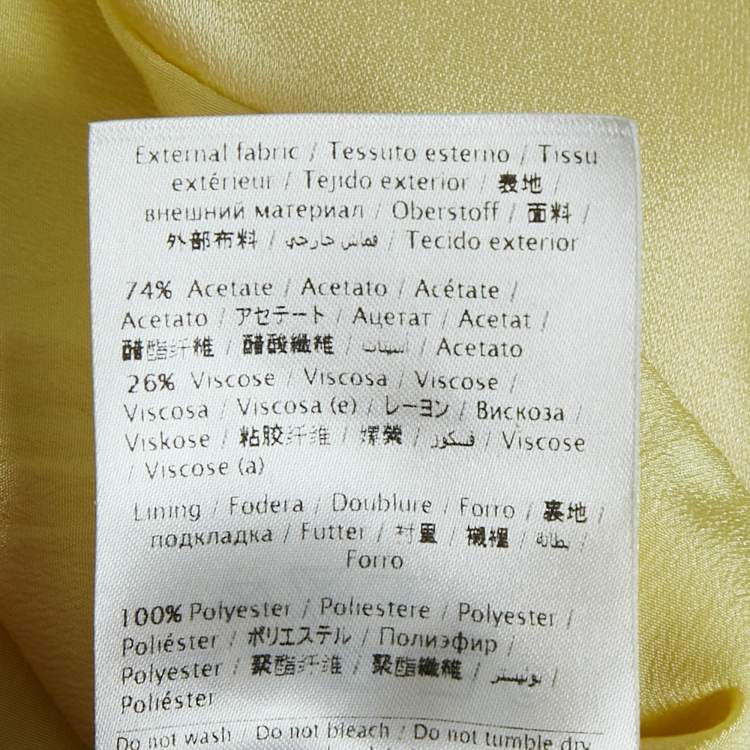 External fabric / Tessuto esterno / Tissu
extérieur / Tejido exterior / 表地 /
внешний материал / Oberstoff / 面料 /
外部布料 / قماش خارجي / Tecido exterior
74% Acetate / Acetato / Acétate /
Acetato / アセテート / Ацетат / Acetat /
醋酯纤维 / 醋酸纖維 / اسيتات / Acetato
26% Viscose / Viscosa / Viscose /
Viscosa / Viscosa (e) / レーヨン / Вискоза /
Viskose / 粘胶纤维 / 嫘縈 / فسكوز / Viscose
/ Viscose (a)
Lining / Fodera / Doublure / Forro / 裏地 /
подкладка / Futter / 衬里 / 襯裡 / بطانة /
Forro
100% Polyester / Poliestere / Polyester /
Poliéster / ポリエステル / Полиэфир /
Polyester / 聚酯纤维 / 聚酯纖維 / بوليستر /
Poliéster
Do not wash / Do not bleach / Do not tumble dry